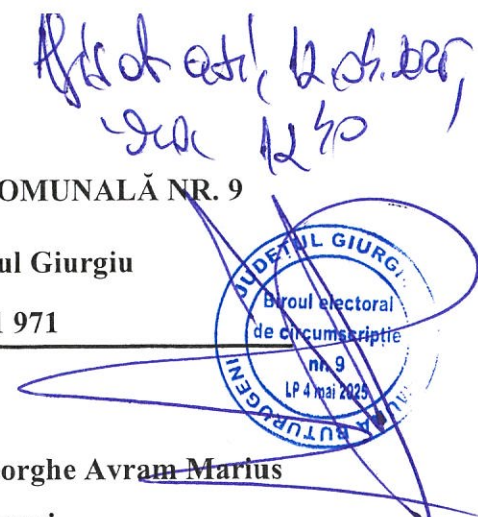 astăzi, 12.04.2025,
ora 12⁴⁰
OMUNALĂ NR. 9
ul Giurgiu
1 971
JUDEȚUL GIURGI
Biroul electoral
de circumscripție
nr. 9
LP 4 mai 2025
BUTURUGENI
orghe Avram Marius